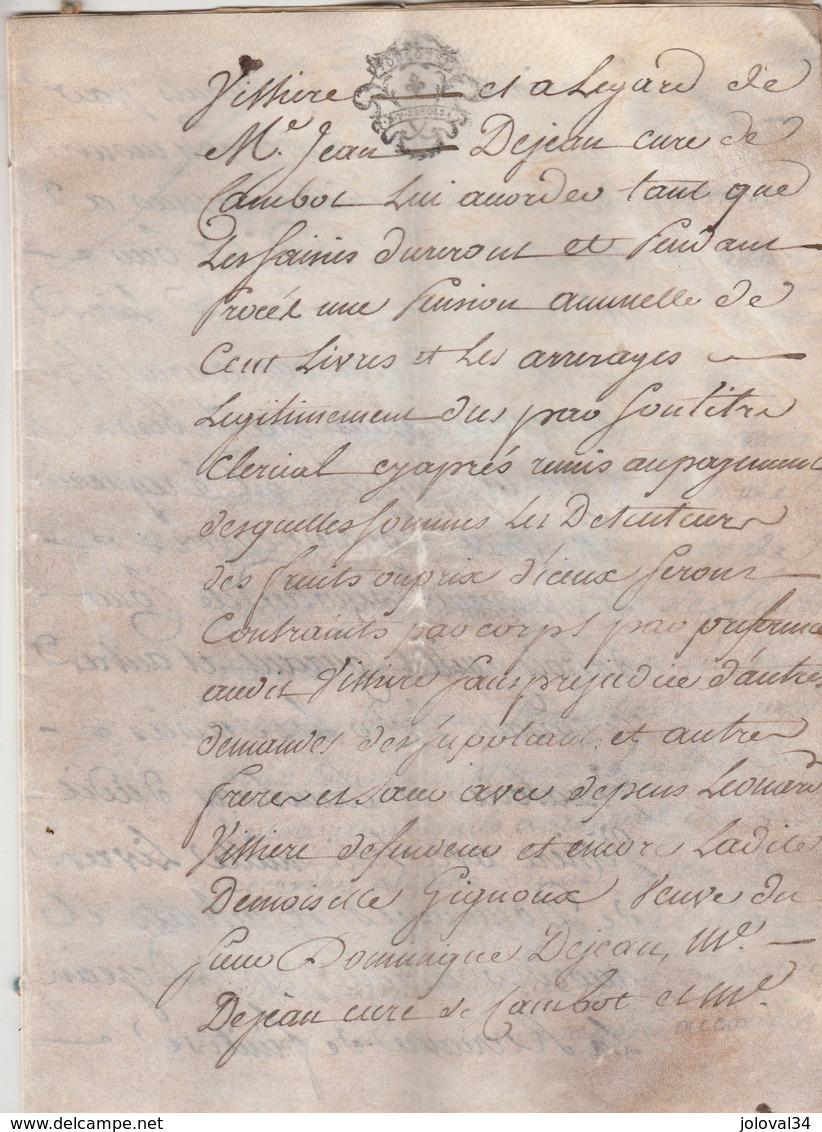 Vissiere et a Legard de
Mr. Jean Dejean cure de
Cambot Lui acorder tant que
Les saisies dureront et Pendant
Procés une Pension annuelle de
Cent Livres et Les arrerages
Legitimement dus par son titre
Clerical cy aprés remis au payement
desquelles sommes Les Detenteurs
des fruits ou prix d'iceux seront
Contraints par corps par preference
audit Vissiere sans prejudice d'autres
demandes des supoliants et autres
freres et soeur avec depens Leonard
Vissiere defendeur et encore Ladite
Demoiselle Gignoux Veuve du
sieur Dominique Dejean, Me.
Dejean cure de Cambot et Me.
DELCAMPE.NET
joloval34